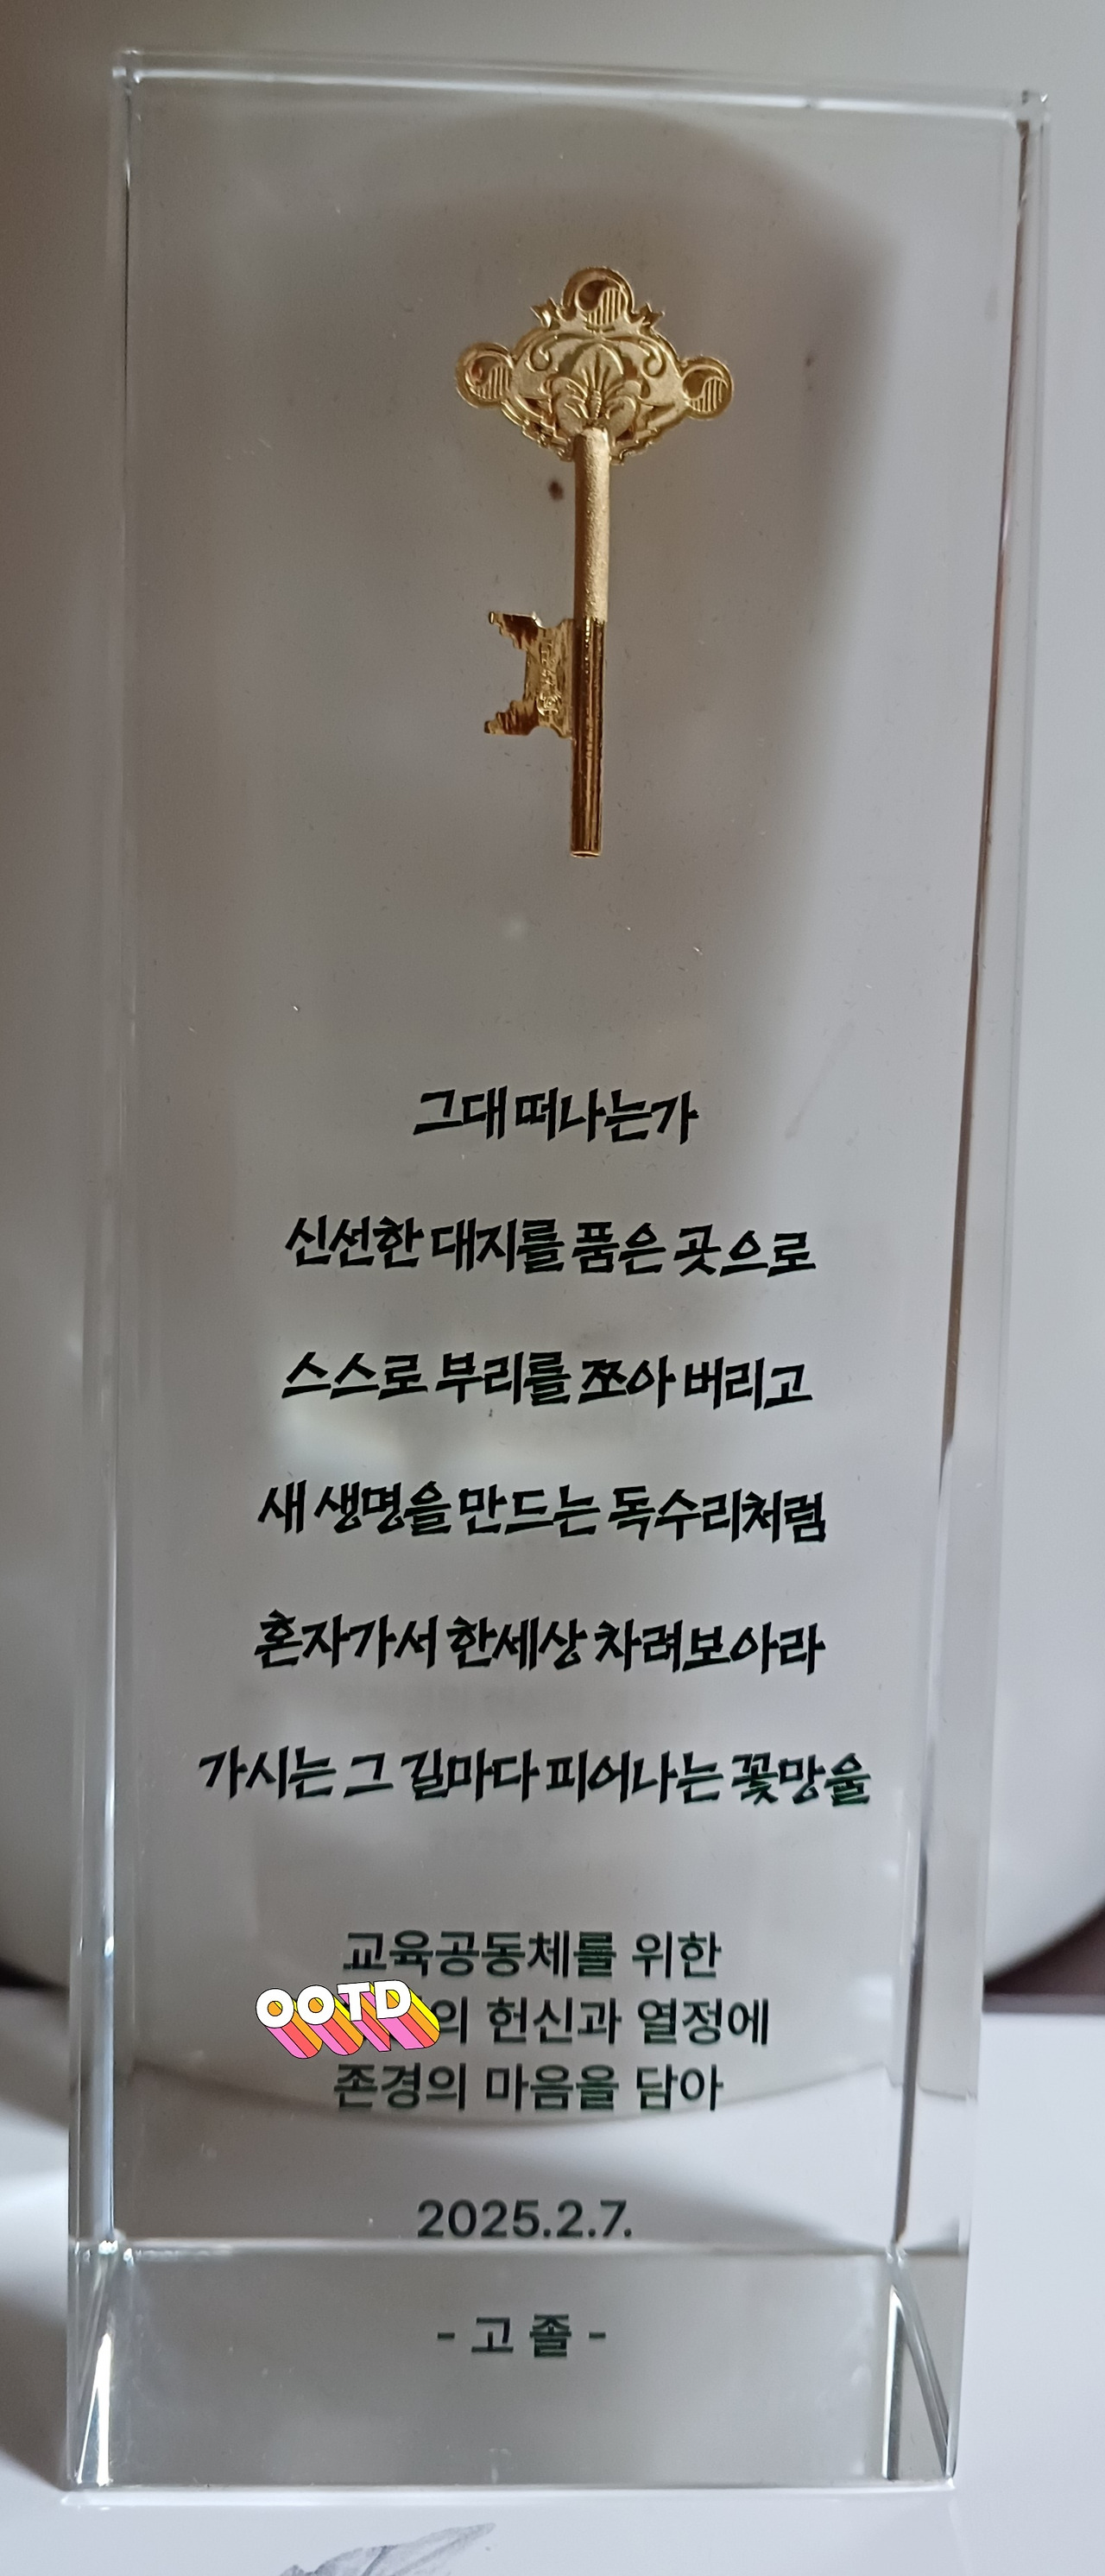 그대 떠나는가
신선한 대지를 품은 곳으로
스스로 부리를 쪼아 버리고
새 생명을 만드는 독수리처럼
혼자가서 한세상 차려보아라
가시는 그 길마다 피어나는 꽃망울
교육공동체를 위한
OOTD의 헌신과 열정에
존경의 마음을 담아
2025.2.7.
- 고 졸 -